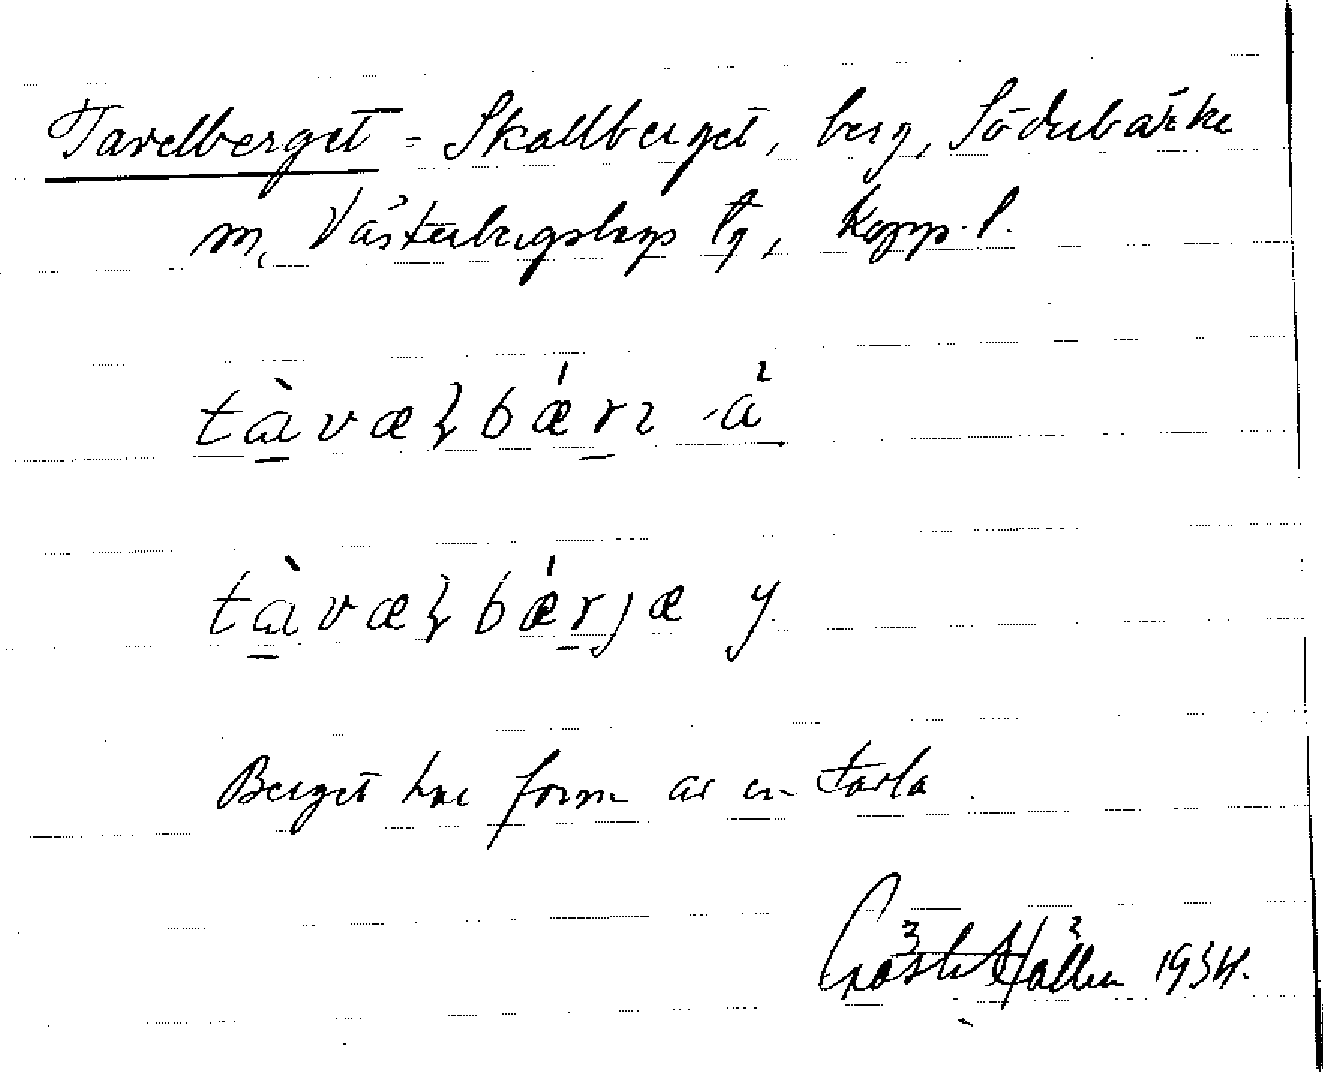 Tavelberget = Skallberget, berg, Söderbärke
sn, Västerbergslags tg, Kopp. l.
tàvæɮbǽrɪ -å
tàvæɮbǽrjæ y.
Berget har form av en tavla.
Gösta Hallén 1934.